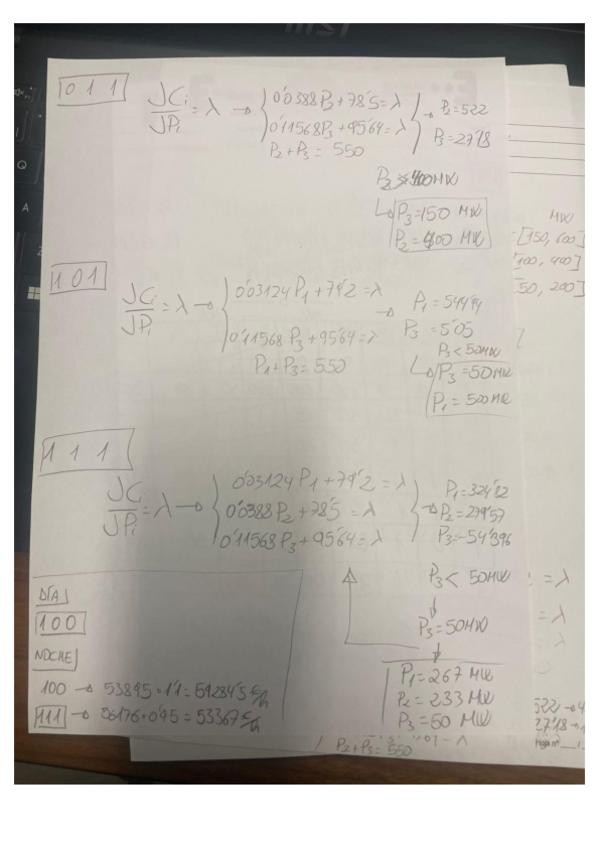 0 1 1
JCi/JPi = λ → { 0'0388P2+78'5=λ
0'11568P3+95'64=λ
P2+P3= 550 } → P2=522
P3=27'18
P2 > 400MW
↳ P3=150 MW
P2=400 MW
MW
[150, 600]
[100, 400]
[50, 200]
1 0 1
JCi/JPi = λ → { 0'03124P1+79'2=λ
0'11568P3+95'64=λ
P1+P3=550
→ P1=544'94
P3=5'05
P3<50MW
↳ P3=50MW
P1=500MW
1 1 1
JCi/JPi = λ → { 0'03124P1+79'2=λ
0'0388P2+78'5=λ
0'11568P3+95'64=λ } → P1=324'82
P2=279'57
P3=-54'396
P3< 50MW
↓
P3=50MW
↓
P1=267 MW
P2=233 MW
P3=50 MW
DÍA
1 0 0
NOCHE
100 → 53895·1'1=59284'5 €/h
111 → 56176·0'95=53367 €/h
=λ
=λ
λ
522→4
27'18→1
P2+P3=550